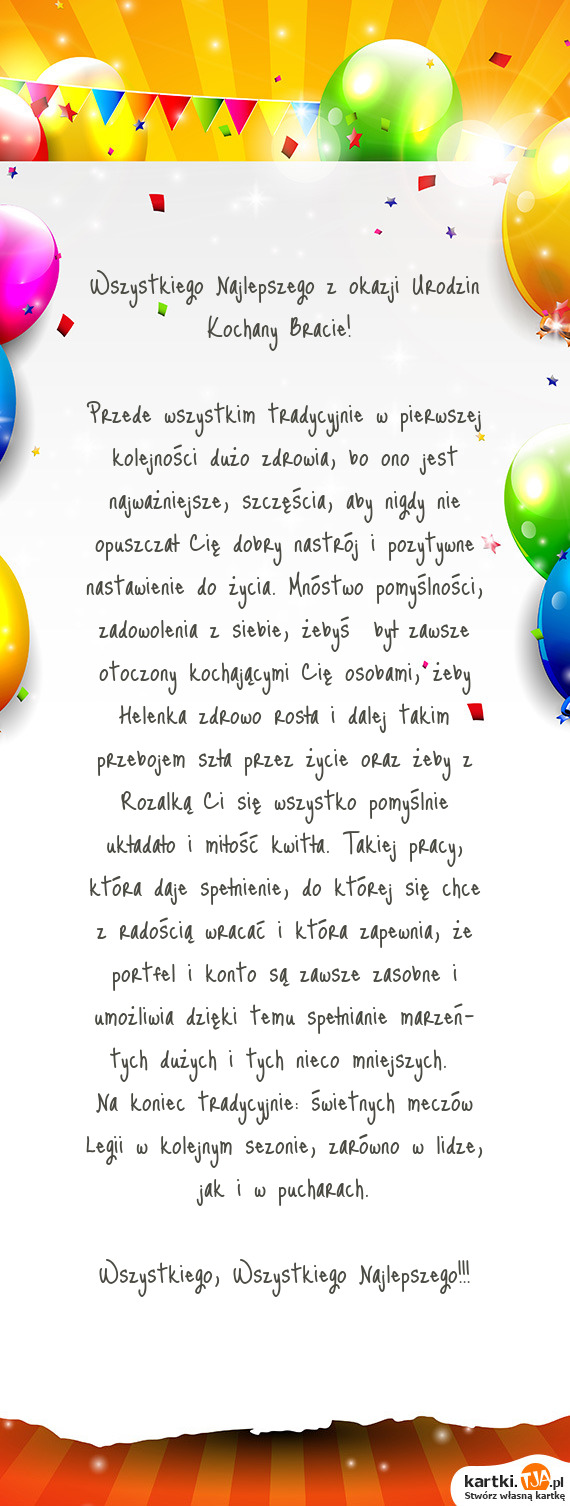 Wszystkiego Najlepszego z okazji Urodzin
Kochany Bracie!
Przede wszystkim tradycyjnie w pierwszej
kolejności dużo zdrowia, bo ono jest
najważniejsze, szczęścia, aby nigdy nie
opuszczał Cię dobry nastrój i pozytywne
nastawienie do życia. Mnóstwo pomyślności,
zadowolenia z siebie, żebyś był zawsze
otoczony kochającymi Cię osobami, żeby
Helenka zdrowo rosła i dalej takim
przebojem szła przez życie oraz żeby z
Rozalką Ci się wszystko pomyślnie
układało i miłość kwitła. Takiej pracy,
która daje spełnienie, do której się chce
z radością wracać i która zapewnia, że
portfel i konto są zawsze zasobne i
umożliwia dzięki temu spełnianie marzeń-
tych dużych i tych nieco mniejszych.
Na koniec tradycyjnie: świetnych meczów
Legii w kolejnym sezonie, zarówno w lidze,
jak i w pucharach.
Wszystkiego, Wszystkiego Najlepszego!!!
kartki.TJA.pl
Stwórz własną kartkę